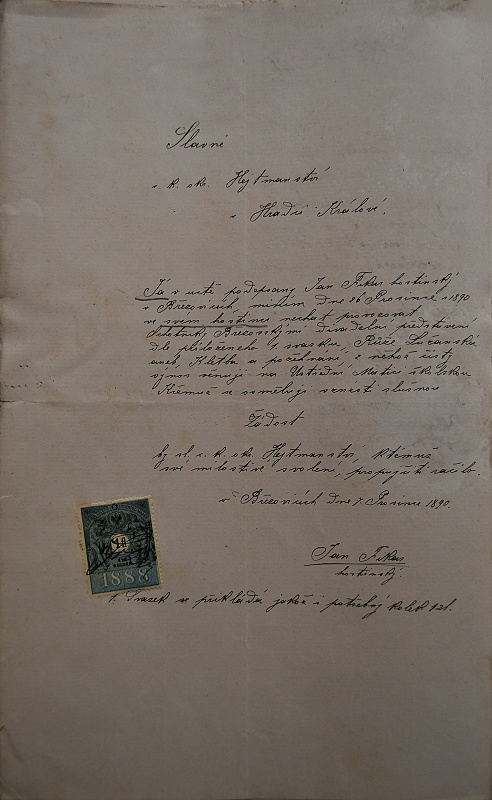 Slavné
c. k. ok. Hejtmanství
v Hradci Králové.
Já v uctě podepsaný Jan Fikar hostinský
v Březovicích, míním dne 26 Prosince 1890
ve svém hostinci nechat provozovat
Březovskými divadelní představení
dle přiloženého 1. svazku, Růže
aneb, Kletba a požehnání, z něhož čistý
výnos věnuji na Ustřední Matici školskou
K čemuž se osměluji vznésti slušnou
Žádost
by sl. c. k. ok. Hejtmanství, k témuž
své milostivé svolení, propujčiti račilo.
v Březovicích dne 7. Prosince 1890.
Jan Fikar
hostinský.
1. Svazek se přikládá jakož i potřebný kolek 1 zl.
1888